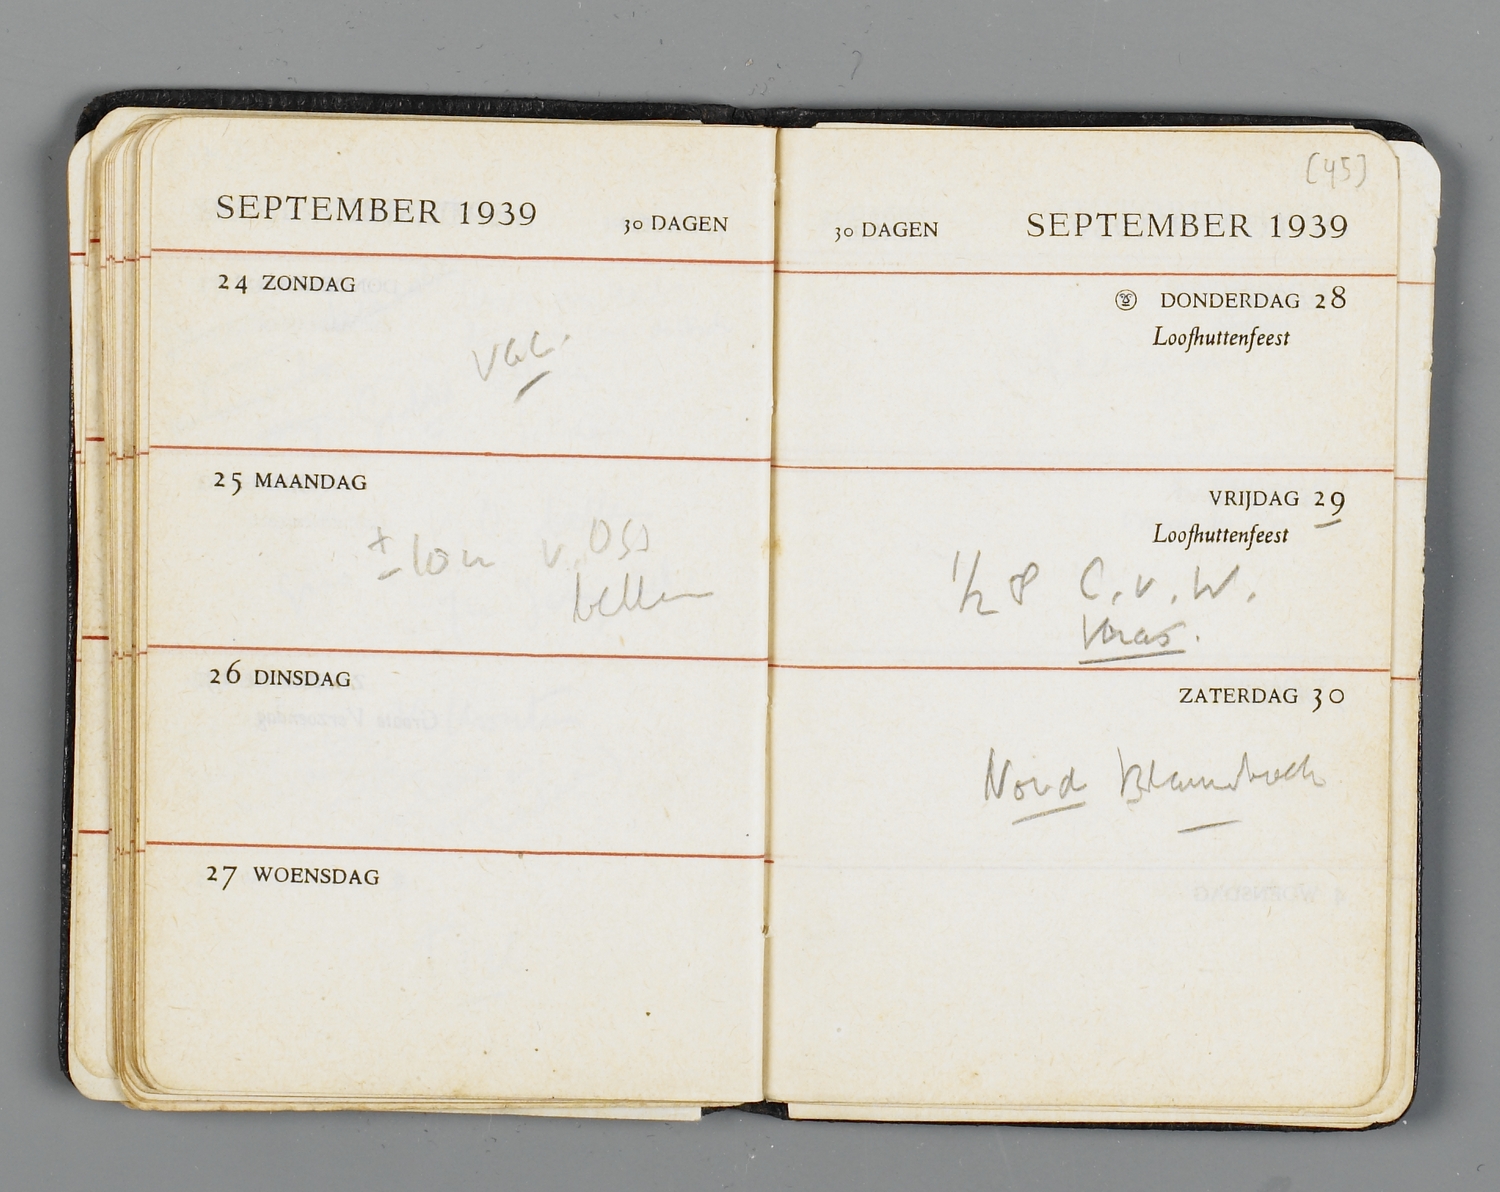 SEPTEMBER 1939 30 DAGEN
24 ZONDAG
25 MAANDAG
± 10 u v. OSS
bellen
26 DINSDAG
27 WOENSDAG
[45]
30 DAGEN SEPTEMBER 1939
DONDERDAG 28
Loofhuttenfeest
VRIJDAG 29
Loofhuttenfeest
1/2 8 C. v. W.
ZATERDAG 30
Noud